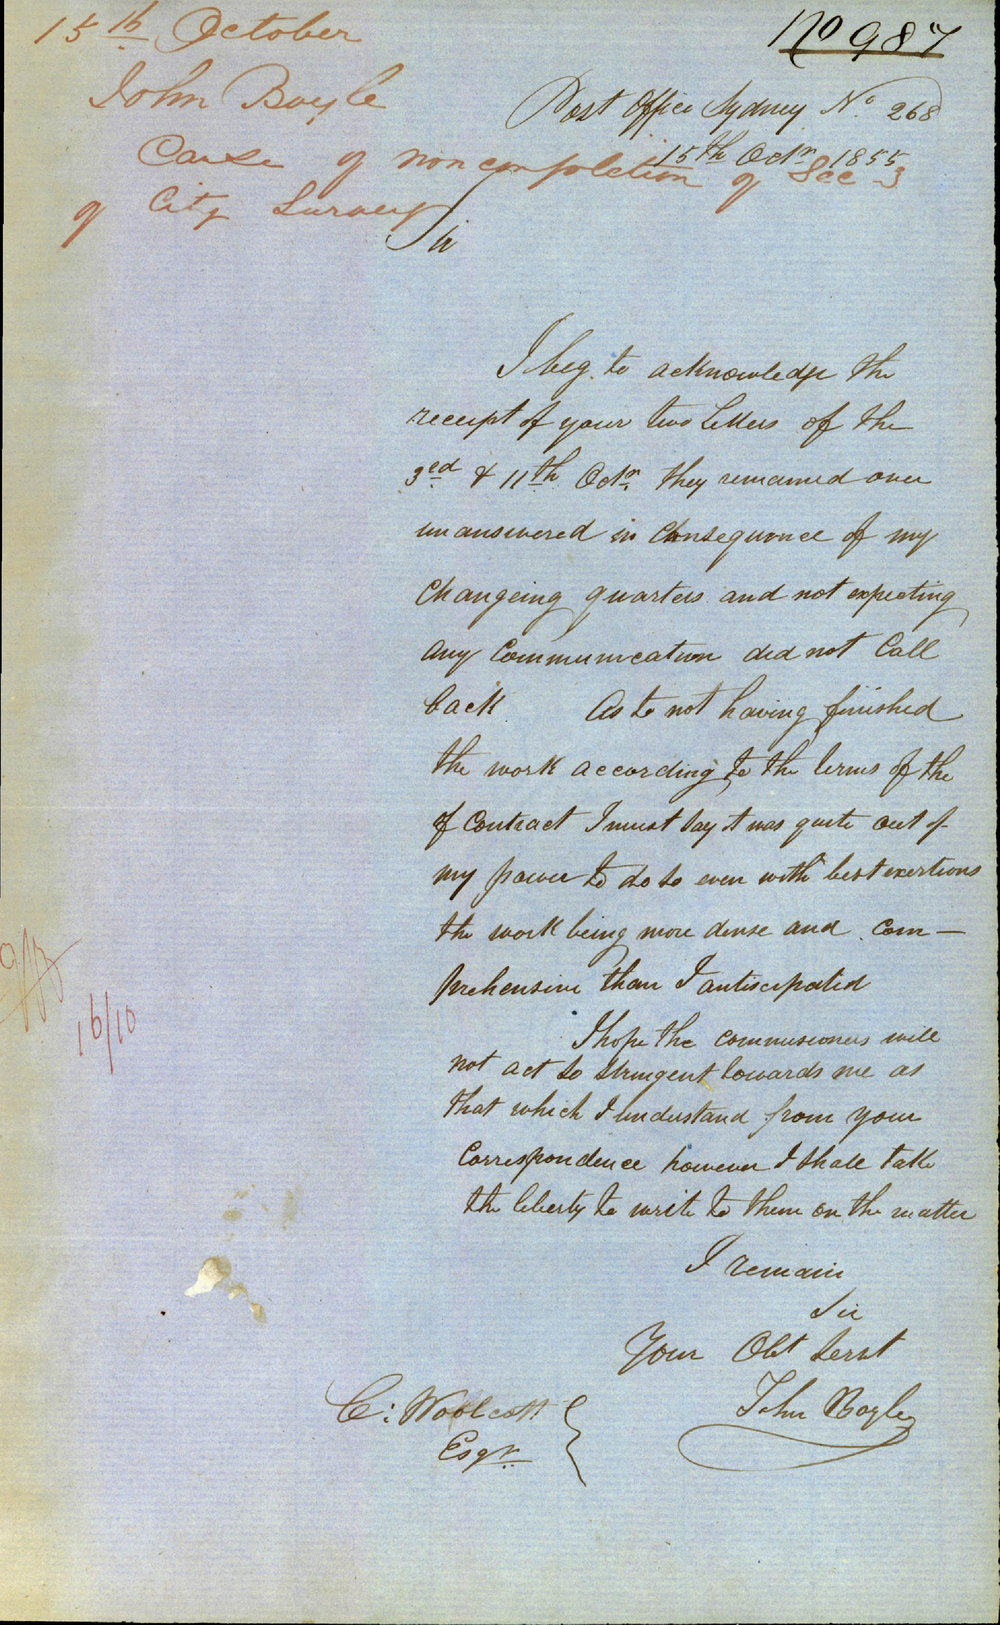 No 987
15th October
John Boyle
Cause of non completion of Sec 3
of City Survey
Post Office Sydney No. 268
15th Octr. 1855
Sir
I beg to acknowledge the
receipt of your two letters of the
3ed & 11th Octr. they remained over
unanswered in Consequence of my
Changeing quarters and not expecting
any Communication did not Call
back As to not having finished
the work according to the terms of the
of Contract I must say it was quite out of
my power to do so even with best exertions
the work being more dense and com–
prehensive than I antiscipated
I hope the commissioners will
not act so stringent towards me as
that which I understand from your
Correspondence however I shall take
the liberty to write to them on the matter
I remain
Sir
Your Obt Servt
John Boyle
C: Woolcott
Esqr.
16/10